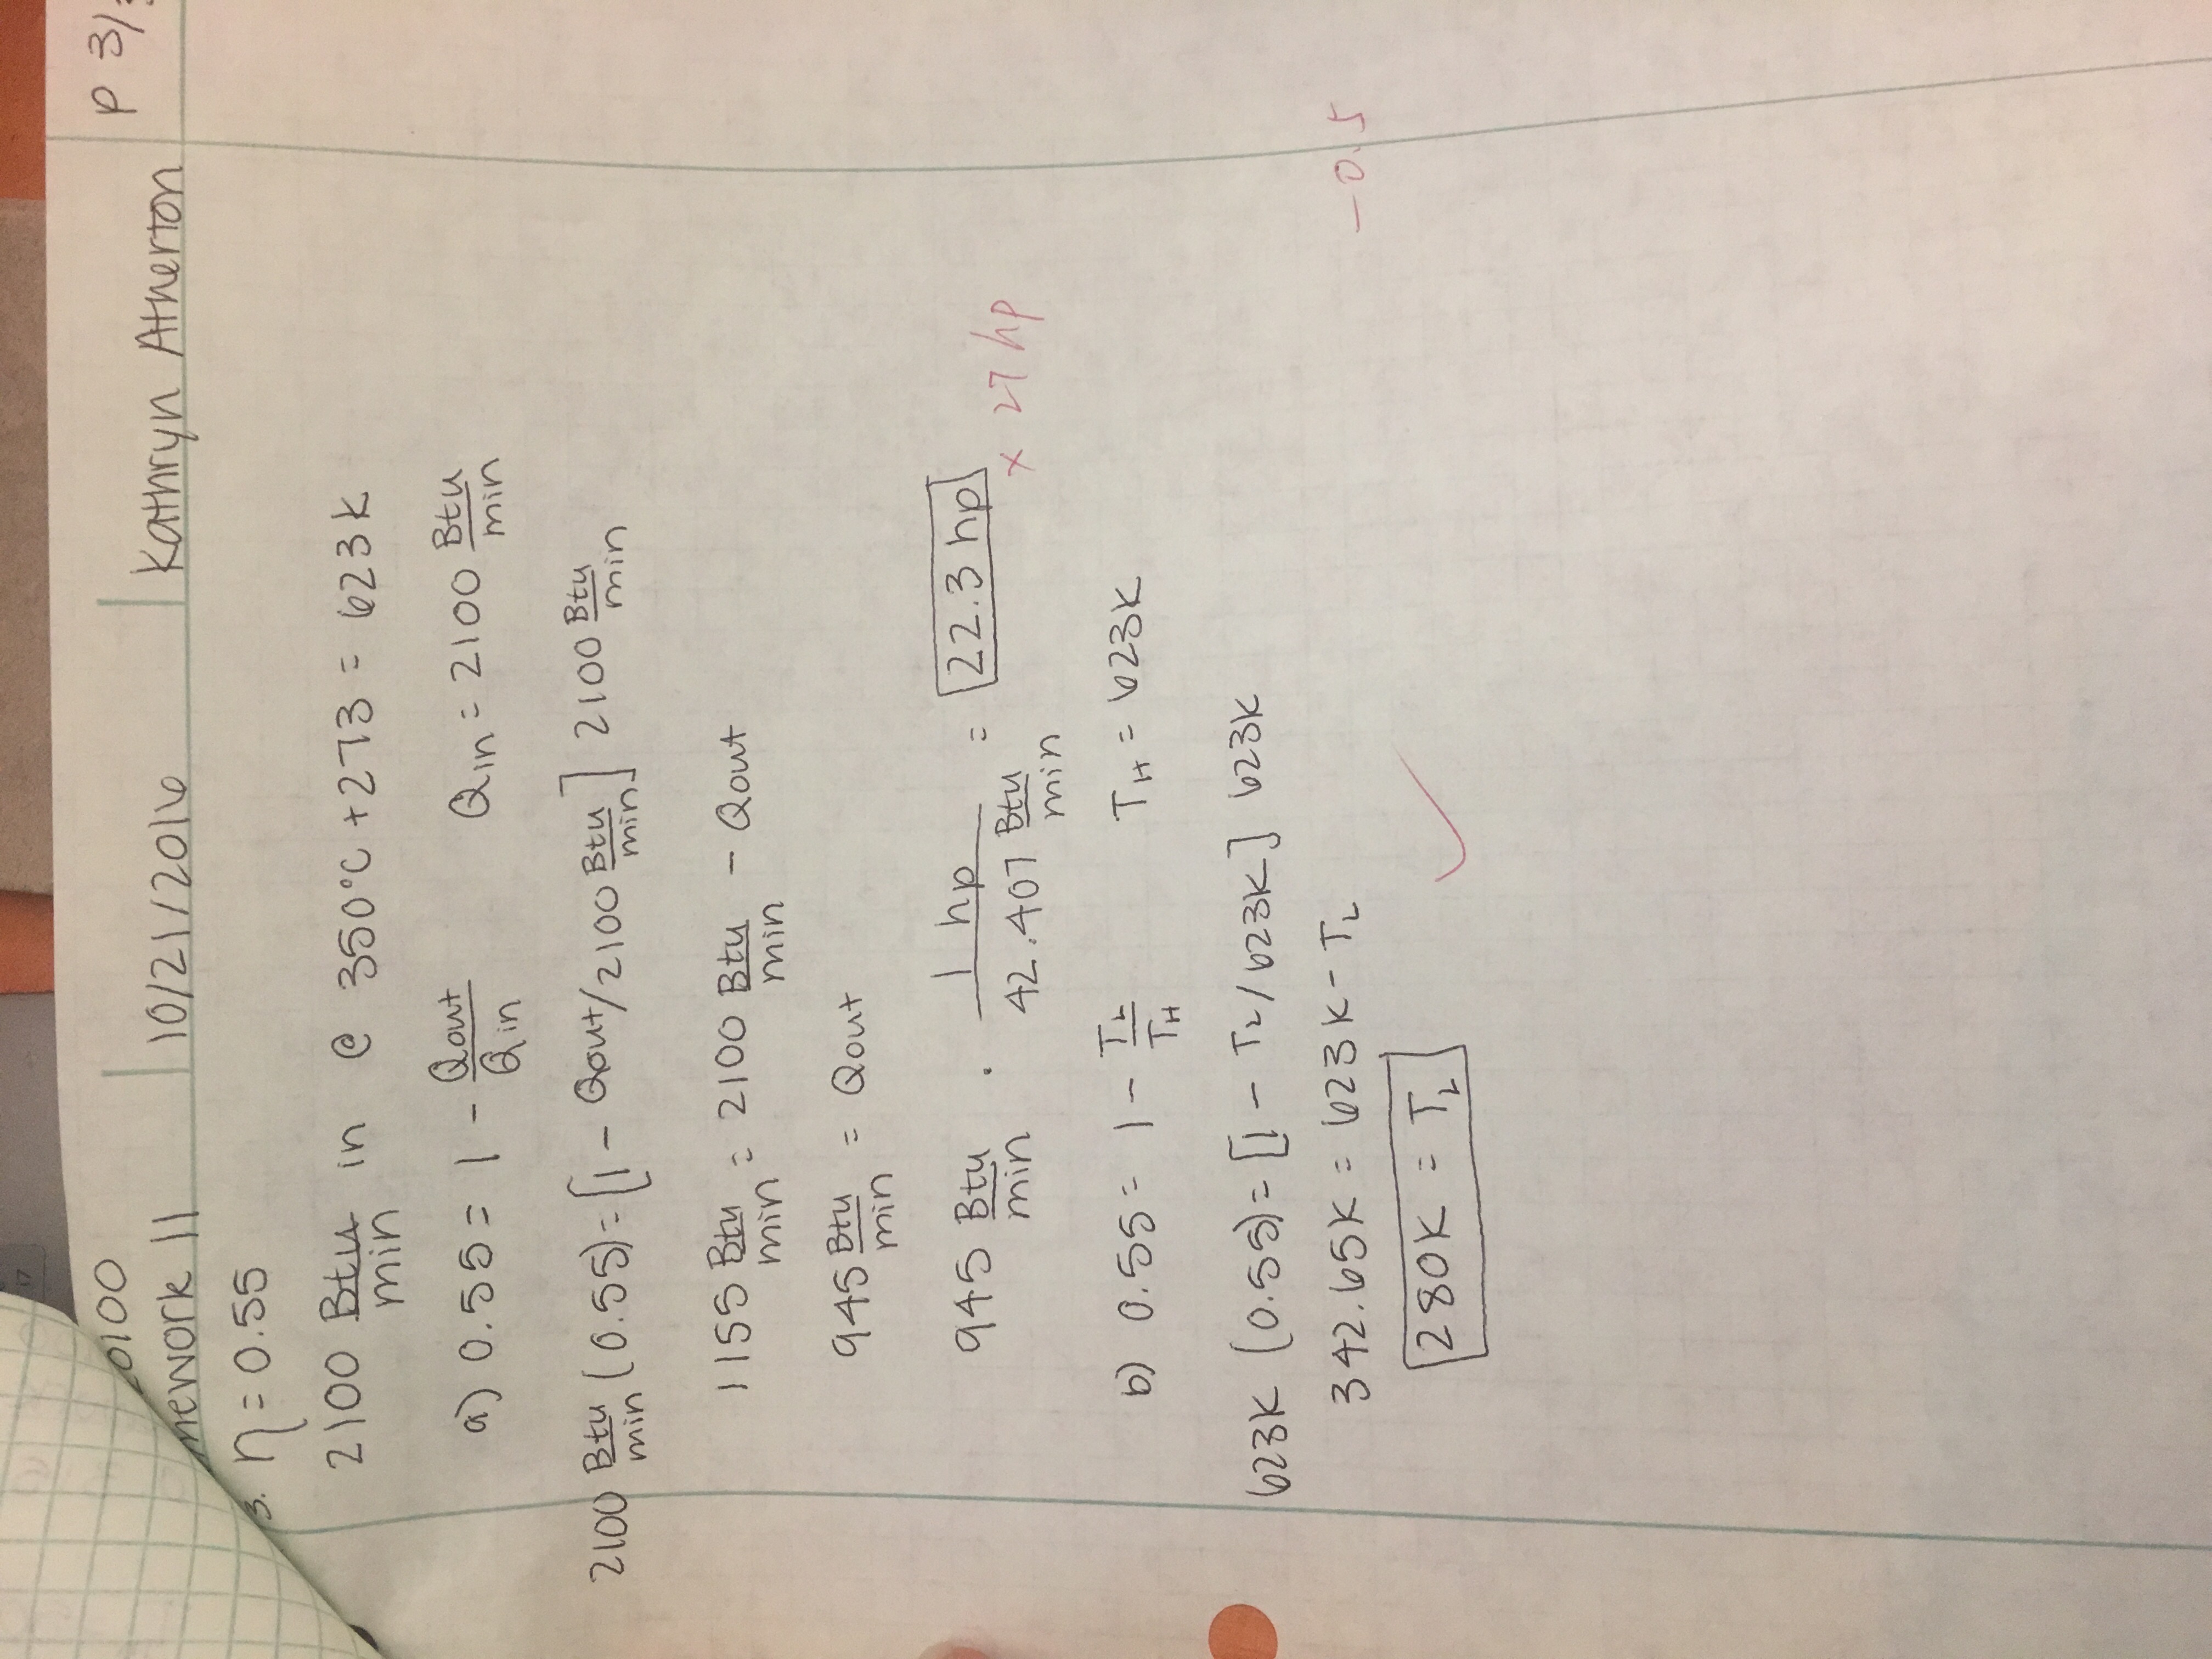 0100
mework 11
10/21/2016
Kathryn Atherton
P 3/
3. η = 0.55
2100 Btu/min in @ 350°C + 273 = 623K
a) 0.55 = 1 - Qout/Qin    Qin = 2100 Btu/min
2100 Btu/min (0.55) = [1 - Qout/2100 Btu/min] 2100 Btu/min
1155 Btu/min = 2100 Btu/min - Qout
945 Btu/min = Qout
945 Btu/min · 1 hp/42.407 Btu/min = 22.3 hp
× 27 hp
b) 0.55 = 1 - TL/TH    TH = 623K
623K (0.55) = [1 - TL/623K] 623K
342.65K = 623K - TL
-0.5
280K = TL ✓